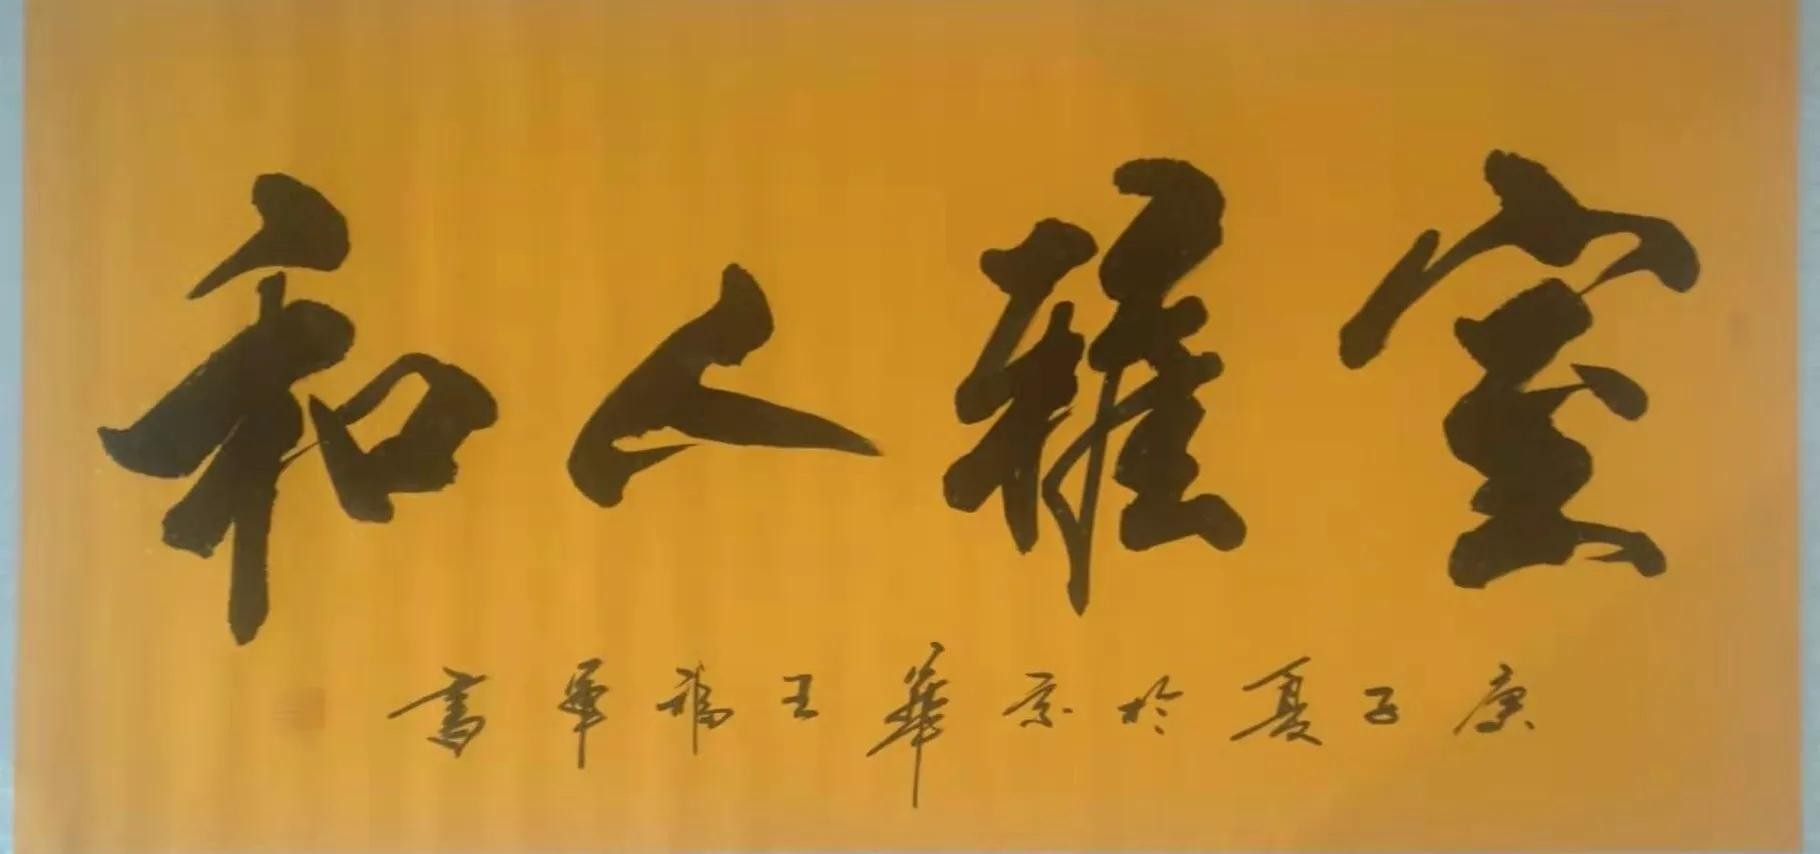 室雅人和
庚子夏於京華王福軍書